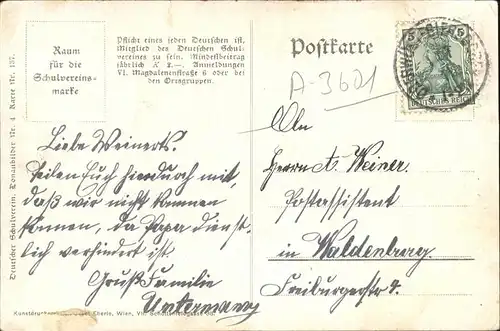 Raum
für die
Schulvereins-
marke
Pflicht eines jeden Deutschen ist,
Mitglied des Deutschen Schul-
vereines zu sein. Mindestbeitrag
jährlich K 2.—. Anmeldungen
VI. Magdalenenstraße 6 oder bei
den Ortsgruppen.
Postkarte
5 5
DEUTSCHES REICH
A-3601
Deutscher Schulverein, Donaubilder Nr. 4 Karte Nr. 157.
Liebe Weinert's.
Teilen Euch hierdurch mit,
daß wir nicht kommen
können, da Papa dienst-
lich verhindert ist.
Gruß Familie
An
Herrn A. Weiner
Postassistent
in Waldenberg.
Freiburgerstr.
Eberle, Wien, VII.